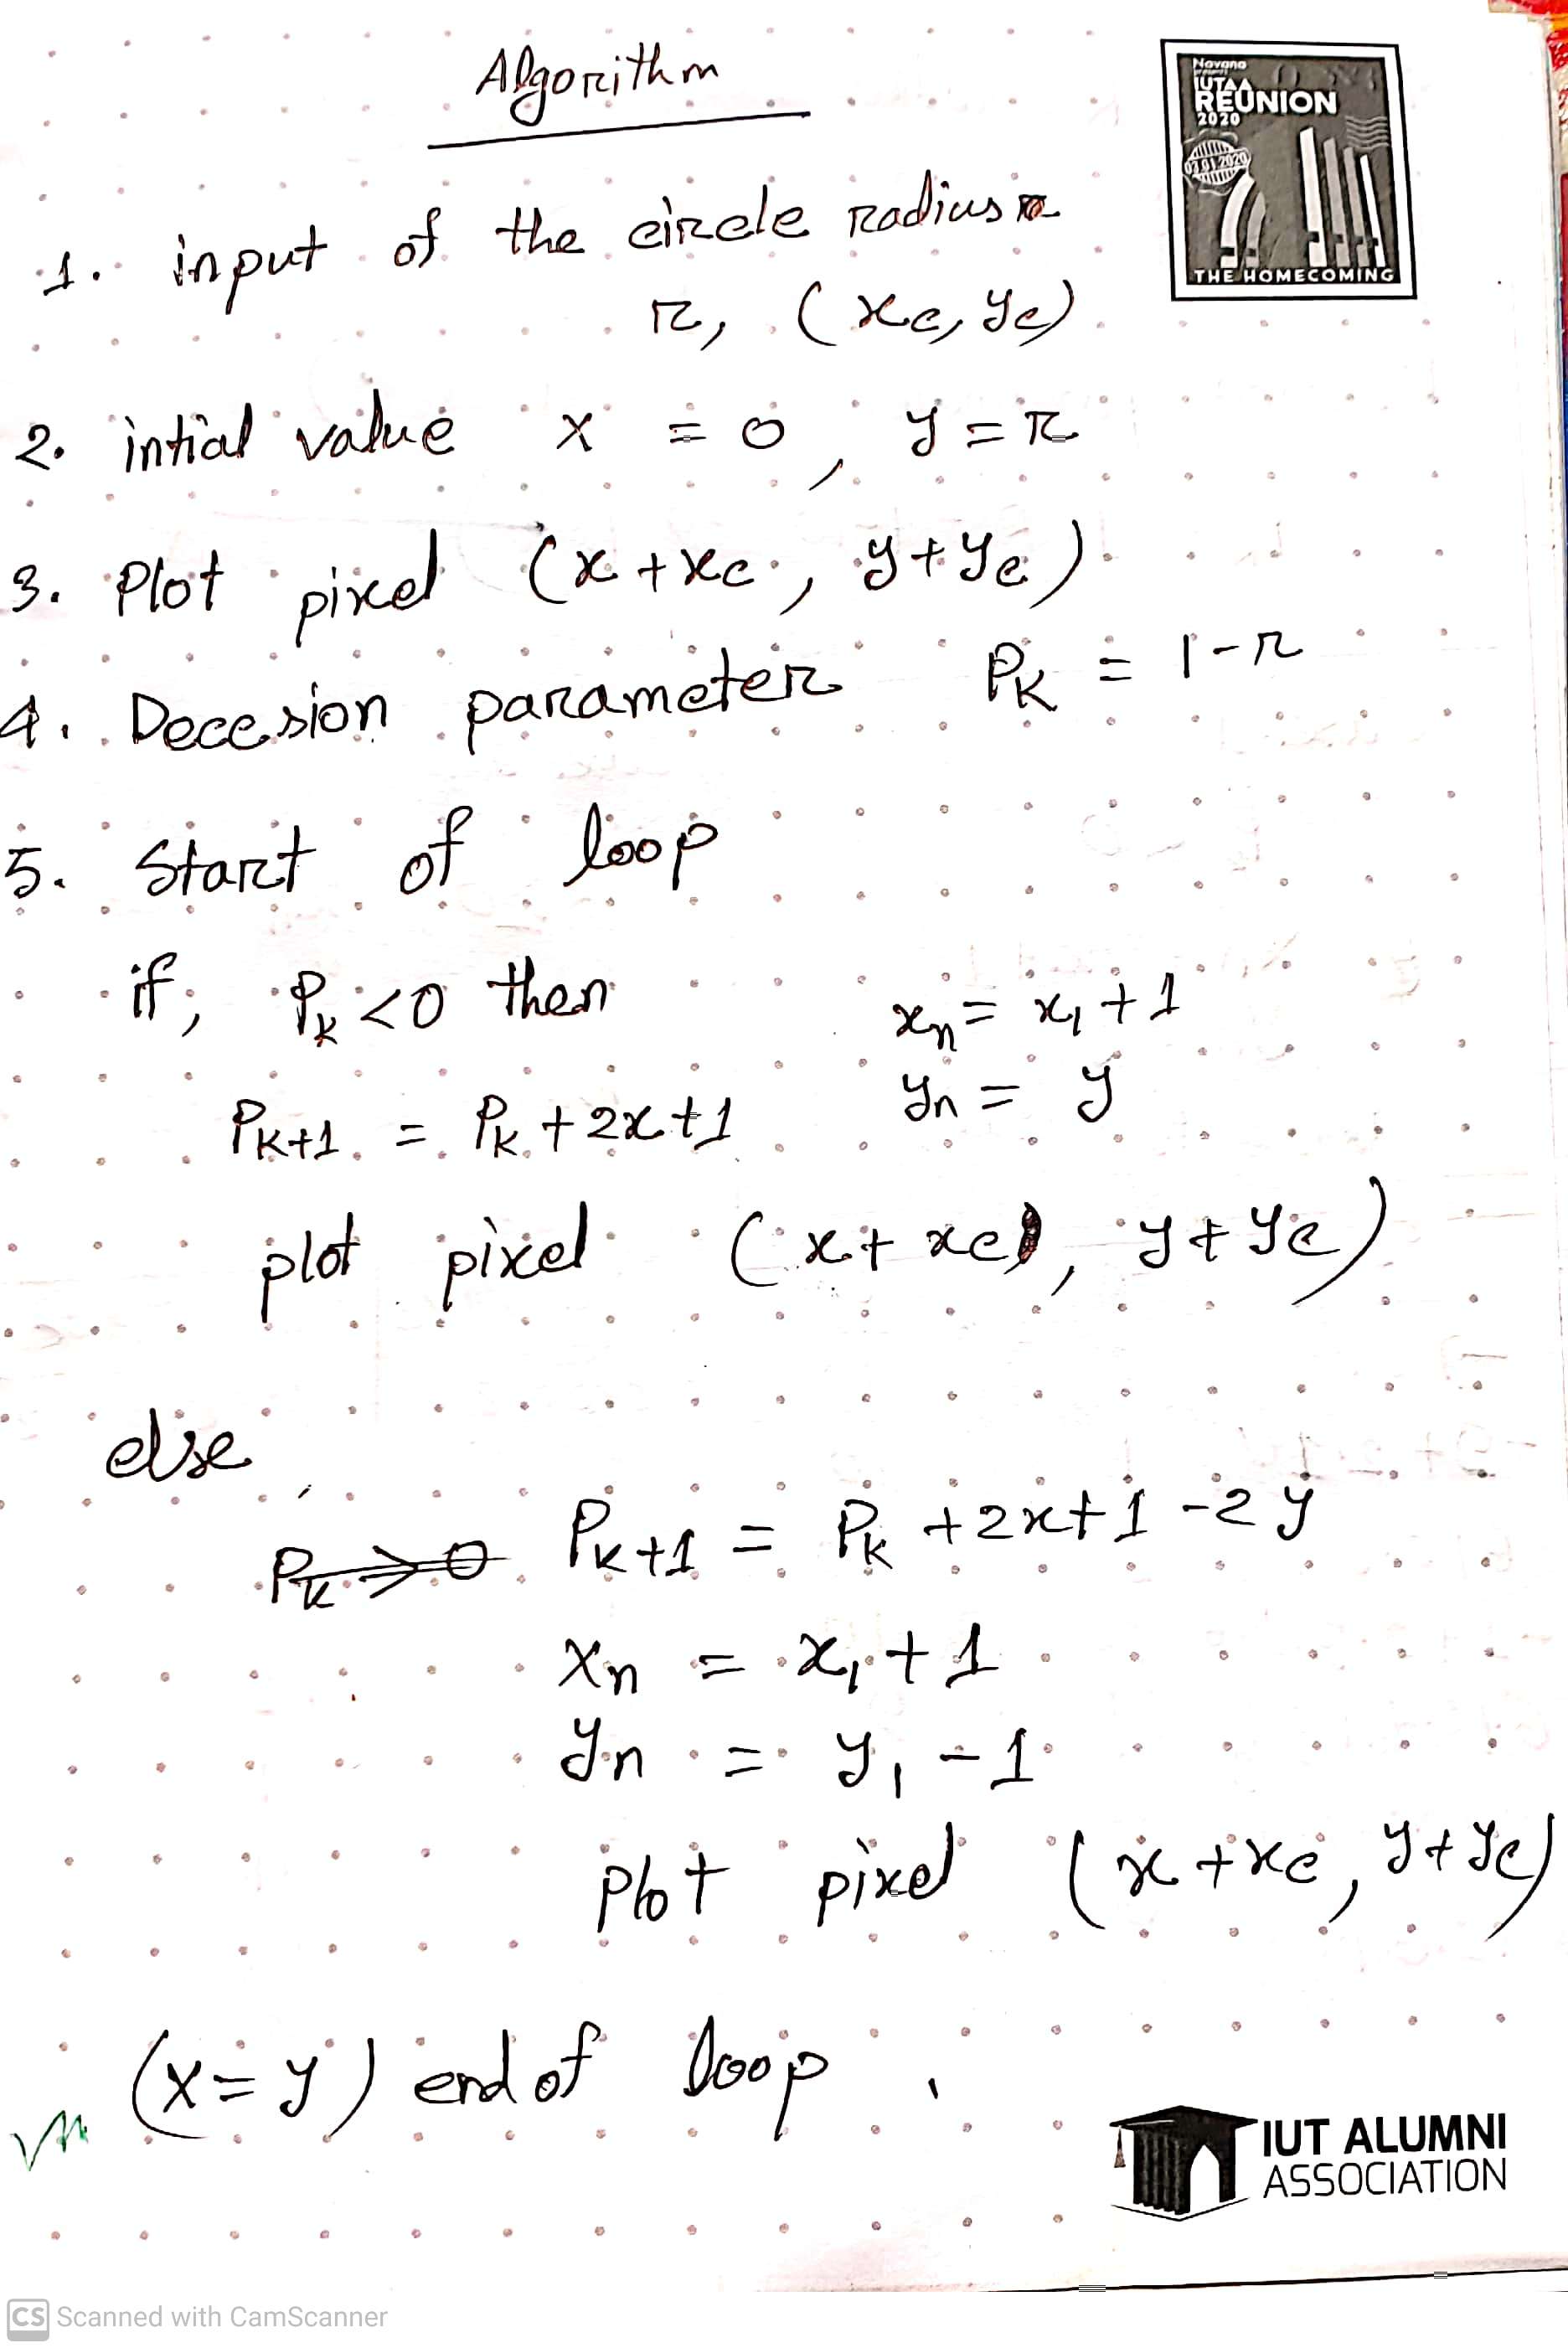 Algorithm
Novana
IUTAA
REUNION
2020
03.01.2020
THE HOMECOMING
1. input of the circle radius
r, (xc, yc)
2. intial value x = 0, y = r
3. Plot pixel (x + xc, y + yc)
4. Decesion parameter Pk = 1 - r
5. Start of loop
if, Pk < 0 then
xn = x1 + 1
yn = y
Pk+1 = Pk + 2x + 1
plot pixel (x + xc, y + yc)
else,
Pk > 0 Pk+1 = Pk + 2x + 1 - 2y
xn = x1 + 1
yn = y1 - 1
plot pixel (x + xc, y + yc)
(x = y) end of loop.
IUT ALUMNI
ASSOCIATION
CS Scanned with CamScanner